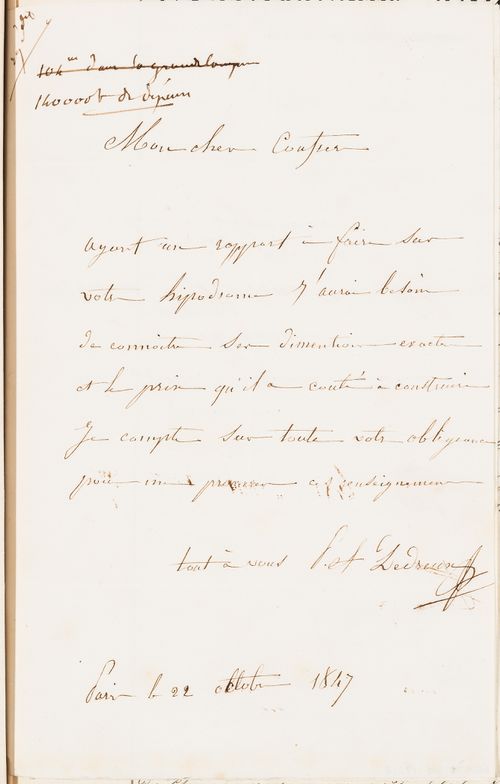 104 m dans la grande longueur
140000f de dépens
Mon cher Couture
ayant un rapport à faire sur
votre hipodrome j'aurai besoin
de connaitre ses dimentions exactes
et le prix qu'il a couté à construire
Je compte sur toute votre obligeance
pour me procurer ces renseignemens
tout à vous
Paris le 22 octobre 1847